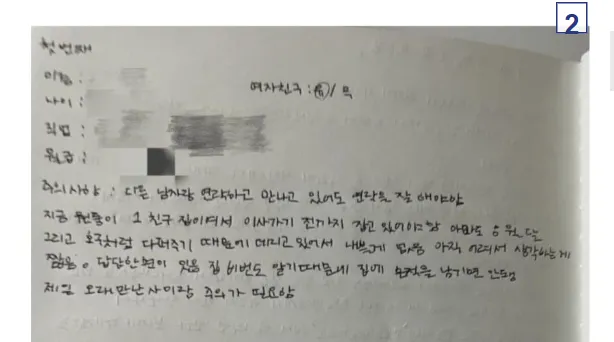 2
첫번째
이름 :
나이 :
여자친구 : 유 / 무
직업 :
월급 :
주의사항 : 다른 남자랑 연락하고 만나고 있어도 연락을 잘 해야함
지금 원룸이 그 친구 집이여서 이사가기 전까지 잡고 있어야함 아마도
그리고 호구처럼 다 퍼주기 때문에 데리고 있어서 나쁠게 없음 아직 어려서 생각하는게
짧음. 답답한면이 있음 집 비번도 알기때문에 집에 흔적을 남기면 안됨
제일 오래만난사이랑 주의가 필요함